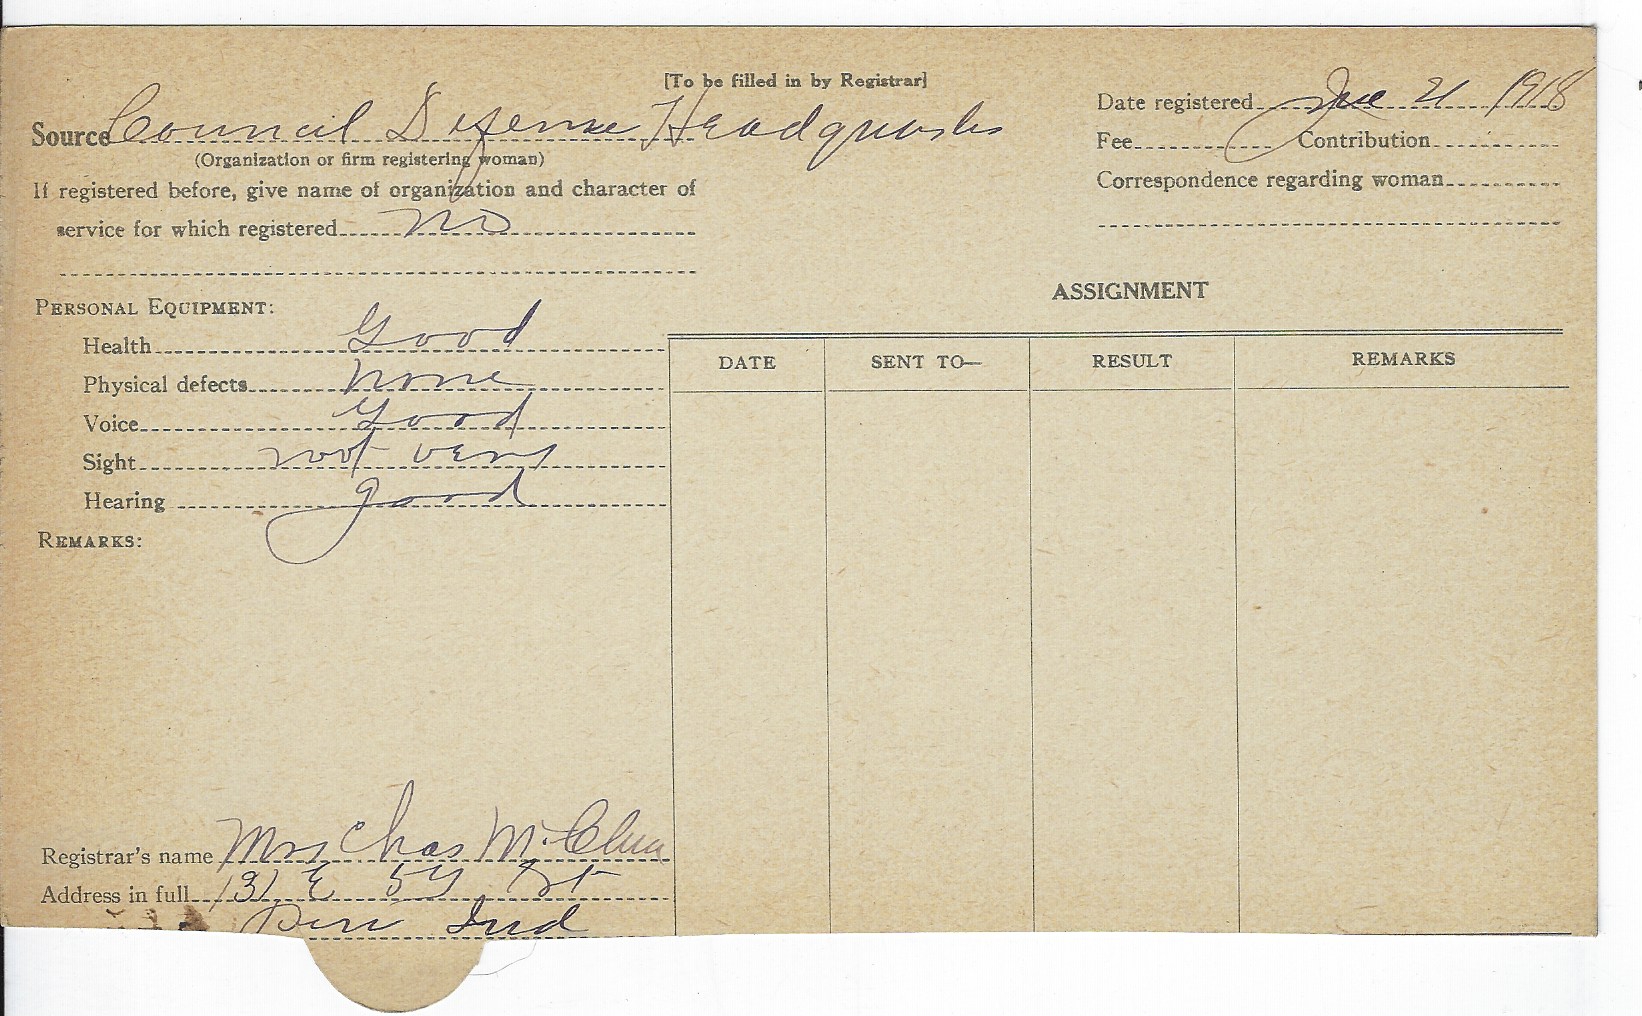 [To be filled in by Registrar]
Source Council Defense Headquarters
(Organization or firm registering woman)
If registered before, give name of organization and character of
service for which registered No
Date registered 21 1918
Fee Contribution
Correspondence regarding woman
PERSONAL EQUIPMENT:
Health Good
Physical defects none
Voice Good
Sight not very
Hearing good
REMARKS:
ASSIGNMENT
DATE SENT TO— RESULT REMARKS
Registrar's name Mrs Chas
Address in full 131 E 57 St
Ind